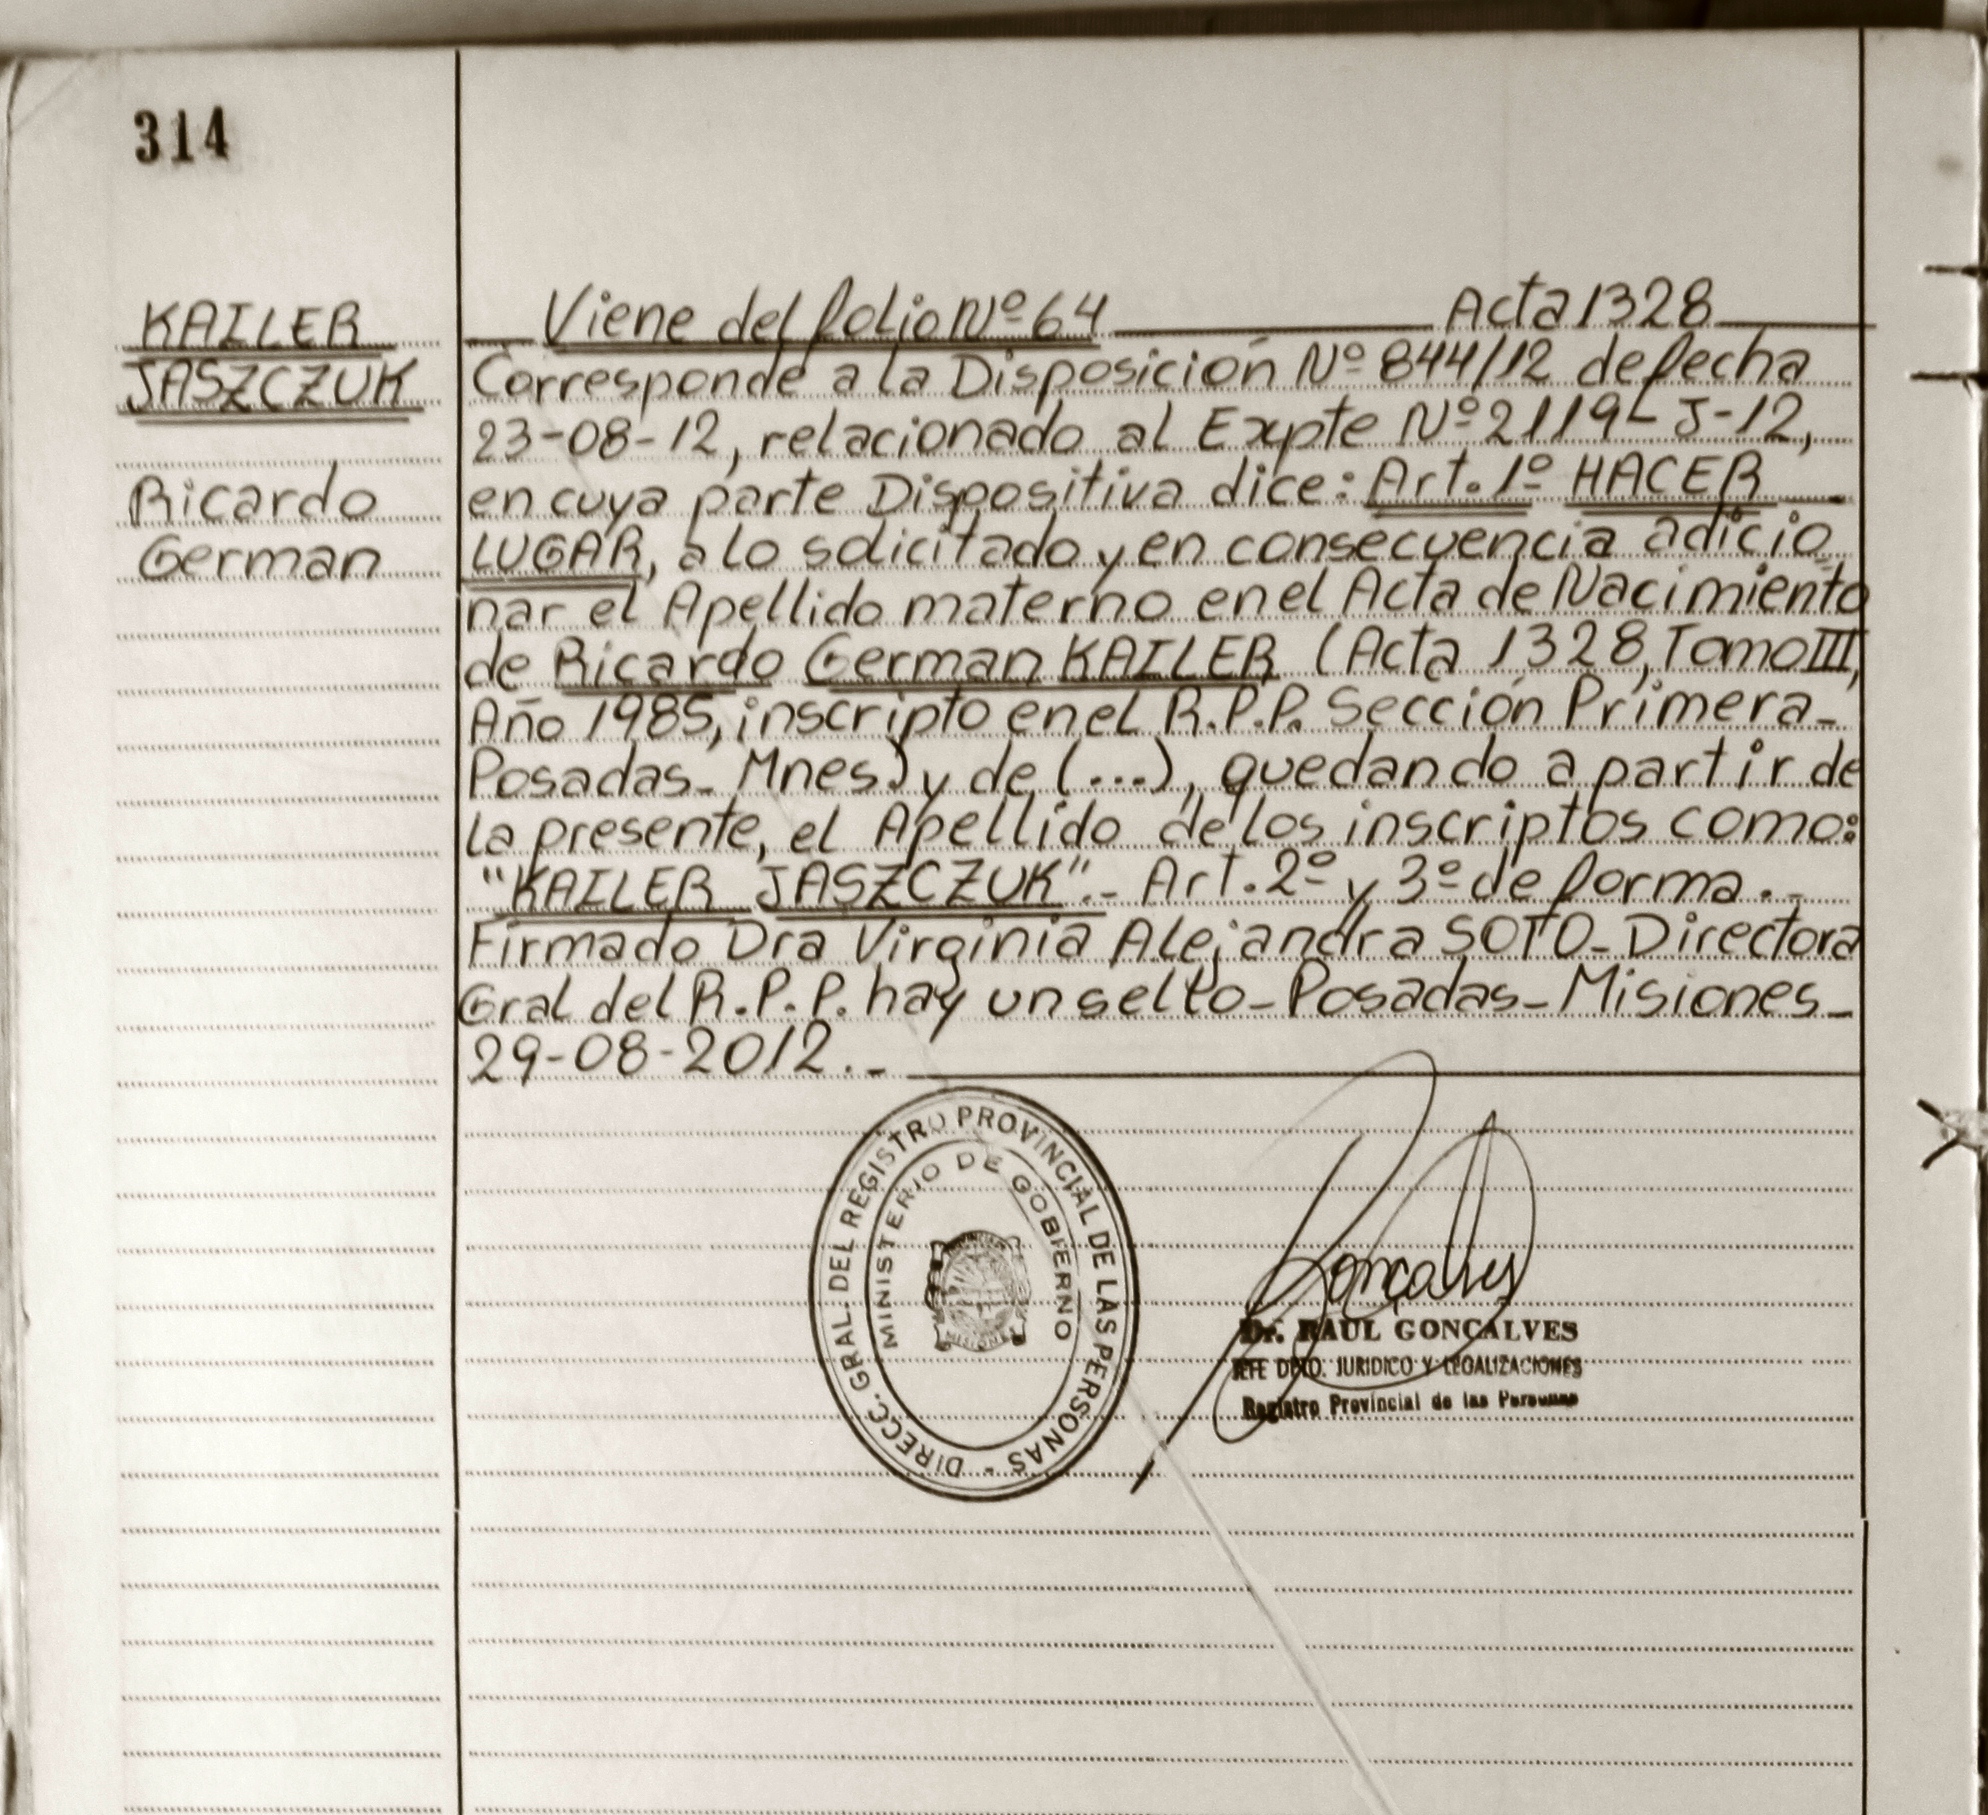 314
KAILER
JASZCZUK
Ricardo
German
Viene del folio Nº 64 Acta 1328
Corresponde a la Disposición Nº 844/12 de fecha
23-08-12, relacionado al Expte Nº 2119-J-12,
en cuya parte Dispositiva dice: Art. 1º HACER
LUGAR, a lo solicitado y en consecuencia adicio
nar el Apellido materno en el Acta de Nacimiento
de Ricardo German KAILER (Acta 1328, Tomo III,
Año 1985, inscripto en el R.P.P. Sección Primera-
Posadas- Mnes) y de (...), quedando a partir de
la presente, el Apellido de los inscriptos como:
"KAILER JASZCZUK".- Art. 2º y 3º de forma.-
Firmado Dra Virginia Alejandra SOTO- Directora
Gral del R.P.P. hay un sello- Posadas- Misiones-
29-08-2012.-
DIRECC. GRAL. DEL REGISTRO PROVINCIAL DE LAS PERSONAS -
MINISTERIO DE GOBIERNO
MISIONES
Goncalves
Dr. RAUL GONCALVES
JEFE DPTO. JURIDICO Y LEGALIZACIONES
Registro Provincial de las Personas